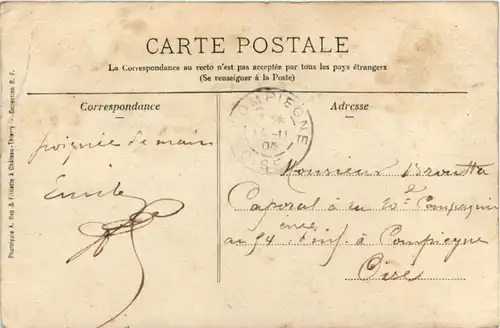 CARTE POSTALE
La Correspondance au recto n'est pas acceptée par tous les pays étrangers
(Se renseigner à la Poste)
Correspondance
Adresse
COMPIEGNE
poignée de main
Emile
Monsieur
Caporal à la Compagnie
au 54 d'inf. à Compiegne
Oise
Phototypie A. Rep & Filliette à Château-Thierry - Collection R. F.